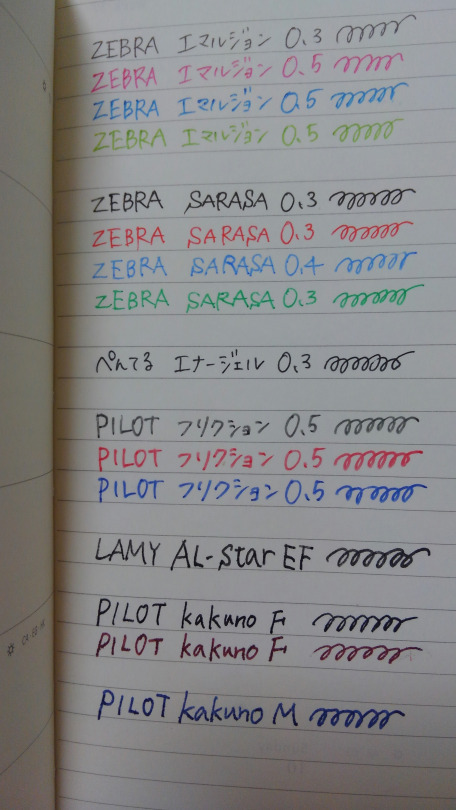 ZEBRA エマルジョン 0.3
ZEBRA エマルジョン 0.5
ZEBRA エマルジョン 0.5
ZEBRA エマルジョン 0.5
ZEBRA SARASA 0.3
ZEBRA SARASA 0.3
ZEBRA SARASA 0.4
ZEBRA SARASA 0.3
ぺんてる エナージェル 0.3
PILOT フリクション 0.5
PILOT フリクション 0.5
PILOT フリクション 0.5
LAMY AL-Star EF
PILOT kakuno F
PILOT kakuno F
PILOT kakuno M